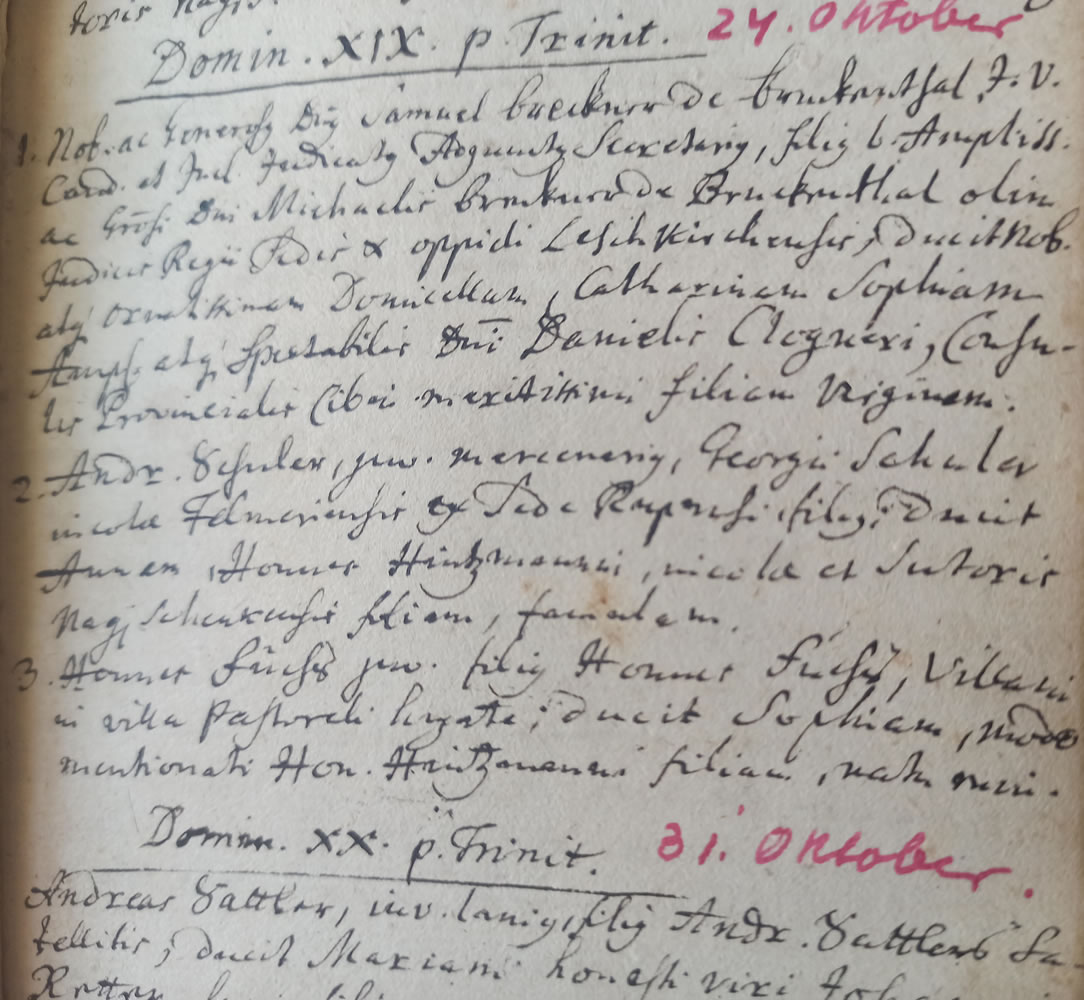 toris Nagÿ.
Domin. XIX. p. Trinit. 24. Oktober
1. Nob. ac Generosq Dnq Samuel breckner de bruckenthal, J. V.
Cand. et Incl. Judicatq Secretariq, filiq b. Ampliss.
ac Grosi Dni Michaelis breckner de Bruckenthal olim
Judicis Regii Sedis & oppidi Leschkirchensis, ducit Nob.
atq ornatissimam Domicellam, Catharinam Sophiam
Ampl. atq Spectabilis Dni Danielis Clogneri, Consu-
lis Provincialis Cibin. meritissimi filiam Virginem.
2. Andr. Schuler, juv. mercenariq, Georgii Schuler
incolæ Felmeriensis ex Sede Rupensi filiq; ducit
Annam, Honnes Heintzmanni, incolæ et Sutoris
Nagj Schenkensis filiam, famulam.
3. Honnes Fuchs juv. filiq Honnes Fuchs, Villani
in villa Pastorali; ducit Sophiam, modo
mentionati Hon. Heintzmanni filiam, natu min.
Domin. XX. p. Trinit. 31. Oktober.
Andreas Sattler, juv. laniq, filiq Andr. Sattlers Sa-
tellitis; ducit Mariam honesti viri
Retter